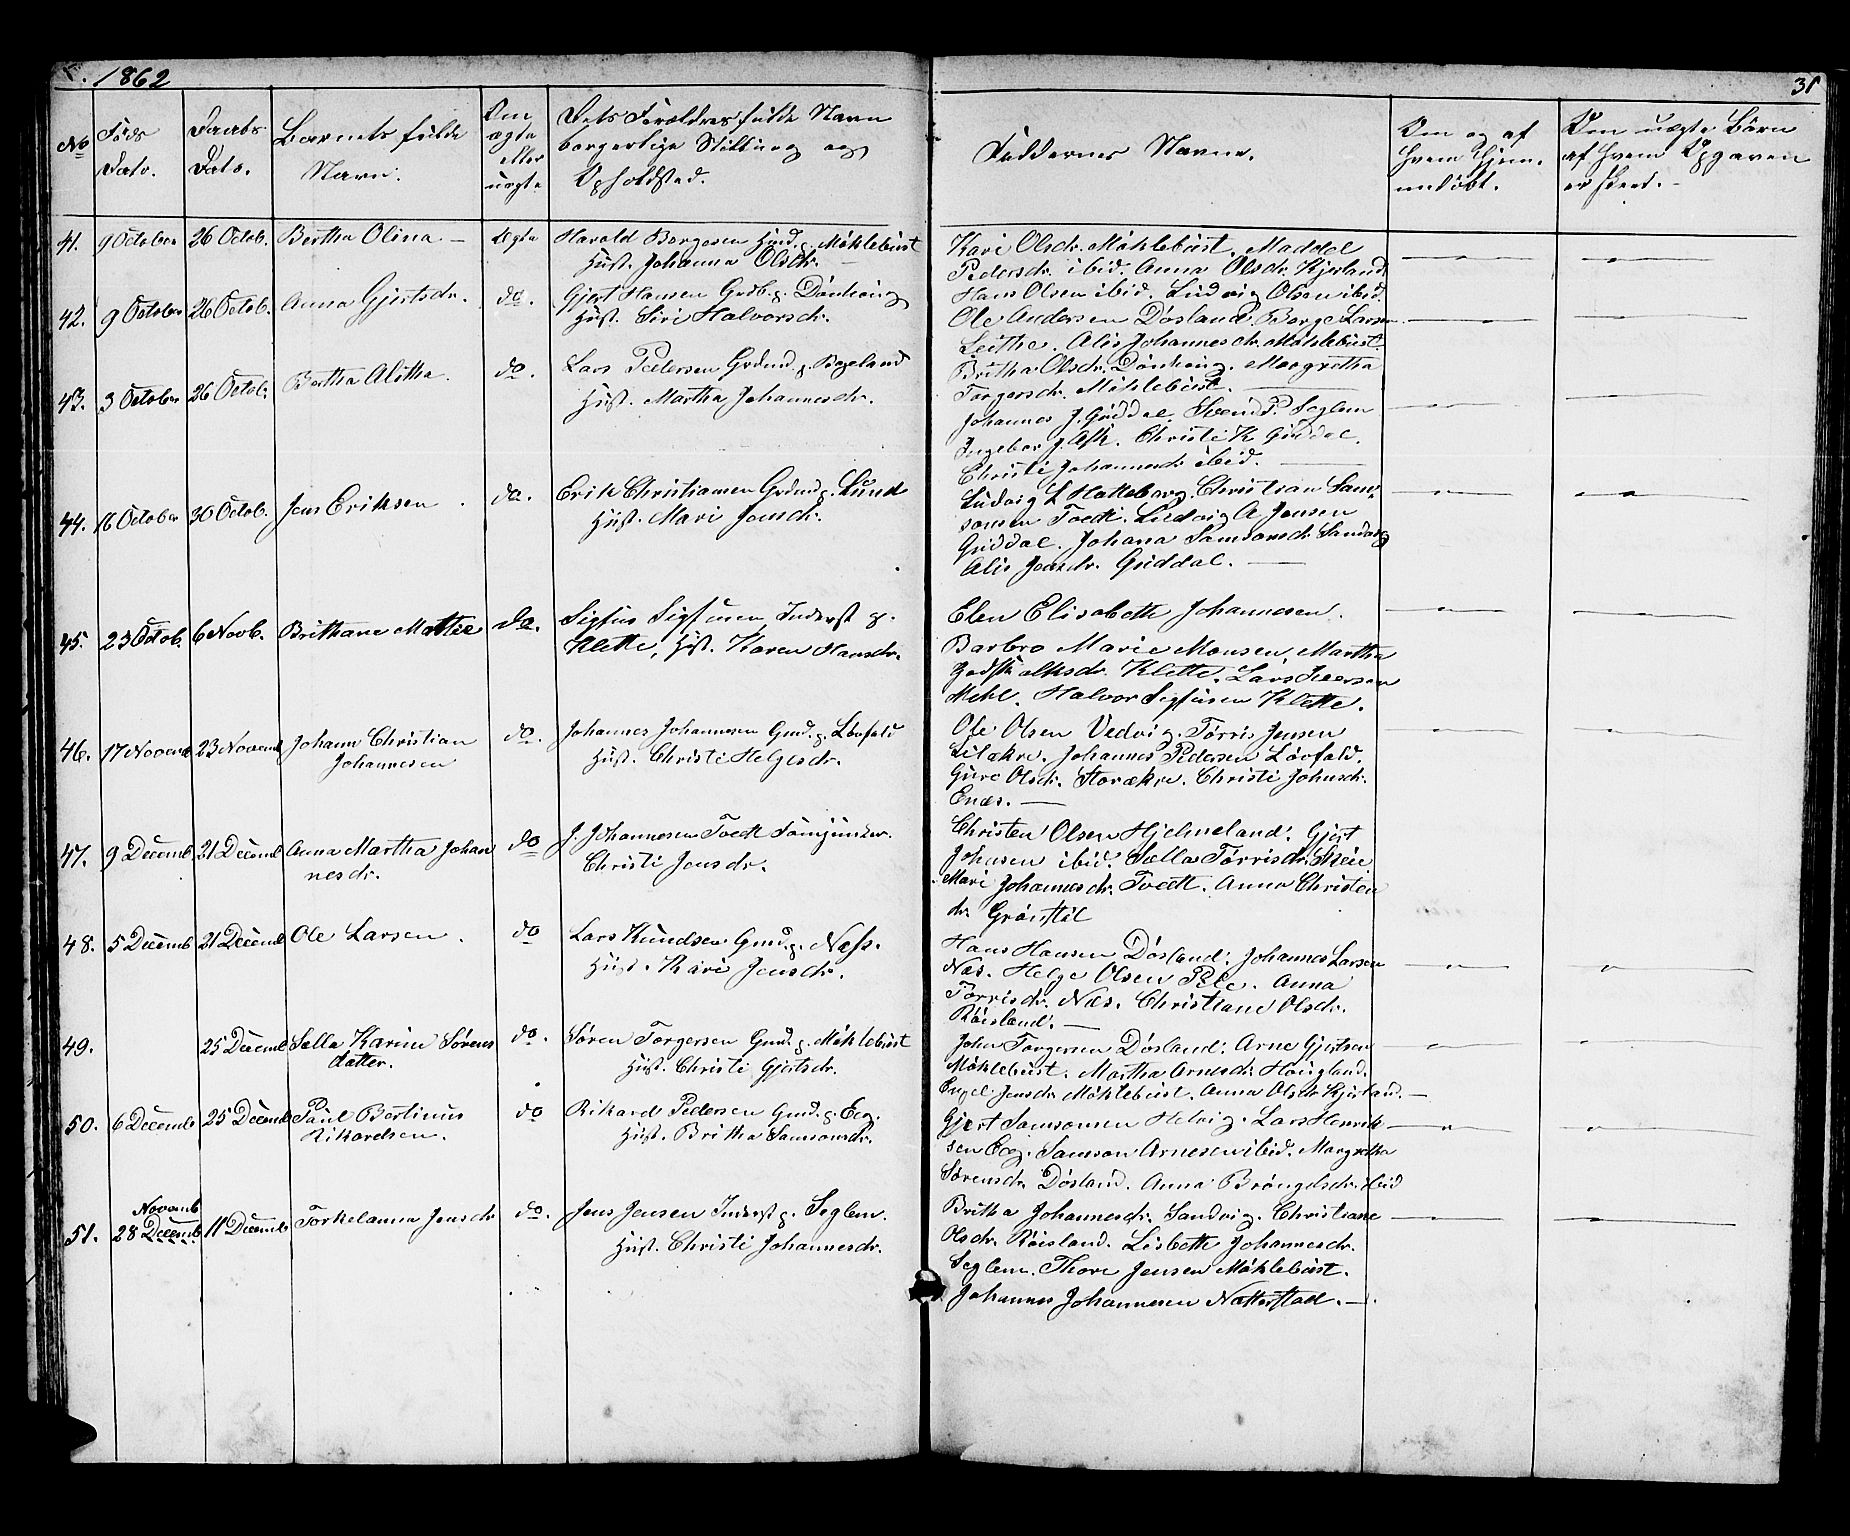 1862
31
No
Föds
Dato.
Daabs
Dato.
Barnets fulde
Navn.
Om
ægte
eller
uægte
Dets Forældres fulde Navn
borgerlige Stilling og
Opholdsted.
Faddernes Navne.
Om og af
hvem hjem-
medöbt.
Om uægte Börn
af hvem Opgaven
er skeet.
41. 9 October 26 Octob. Bertha Olina. ægte Harald Borgesen Husm. p. Möklebust
Hust. Johanna Olsdr.
Kari Olsdr. Möklebust. Maddel
Pedersdr. ibid. Anna Olsdr. Kjerland.
Hans Olsen ibid. Ludvig Olsen ibid.
42. 9 October 26 Octob. Anna Gjertsdr. do. Gjert Hansen Grdb. p. Dönhoug
Hust. Siri Halvorsdr.
Ole Andersen Dösland Borge Larsen
Leithe. Alis Johannesdr. Möklebust.
Britha Olsdr. Dönhoug. Margretha
Torgersdr. Möklebust.
43. 3 October 26 Octob. Bertha Alitha. do. Lars Pedersen Grdmd. p.
Hust. Martha Johannesdr.
Johannes J. Guddal. Svend P. Seglem
Ingebor J. Ask. Christi K Guddal.
Christi Johannesdr ibid.
44. 16 October 30 Octob. Jens Eriksen. do. Erik Christiansen Grdmd p. Lund
Hust. Mari Jensdr.
Ludvig L Hatteberg. Christian Sam-
sonsen Tvedt. Ludvig A Jensen
Guddal. Johana Samsonsdr. Sandvig
Alis Jensdr. Guddal.
45. 23 Octob. 6 Novb. Brithane Mattie do. Sigfus Sigfusen, Inderst p.
Klette, Hust. Karen Hansdr.
Elen Elisabeth Johannesen.
Barbro Marie Monsen, Martha
Godskalksdr. Klette. Lars Iversen
Mehl. Halvor Sigfusen Klette.
46. 17 Novemb 23 Novemb Johann Christian
Johannesen
do. Johannes Johannesen Gmd. p. Lövfald
Hust. Christi Helgesdr.
Ole Olsen Vedvig. Törris Jensen
Lilækre. Johannes Pedersen Lövfald.
Guro Olsdr. Storækre. Christi Johnsdr.
Enæs.
47. 9 Decemb 21 Decemb Anna Martha Johan
nesdr.
do J. Johannesen Tvedt
Christi Jensdr.
Christen Olsen Hjelmeland. Gjert
Johnsen ibid. Sælla Törrisdr. Skeie
Mari Johannesdr. Tvedt. Anna Christen
dr.
48. 5 Decemb 21 Decemb Ole Larsen. do Lars Knudsen Gmd. p. Næss.
Hust. Kari Jensdr.
Hans Hansen Dösland. Johannes Larsen
Næs. Helge Olsen Pile. Anna
Törrisdr. Næs. Christiane Olsdr.
Röisland.
49. 25 Decemb Sælla Karine Sörens
datter.
do. Sören Torgersen Gmd. p. Möklebust
Hust. Christi Gjertsdr.
John Torgersen Dösland. Arne Gjertsen
Möklebust. Martha Arnesdr. Hougland.
Engel Jensdr. Möklebust. Anna Olsdr Kjerland.
50. 6 Decemb 25 Decemb Paul Bertinus
Rikardsen.
do Rikard Pedersen Gmd. p. Eeg.
Hust. Britha Samsonsdr.
Gjert Samsonsen Helvig. Lars Henrik-
sen Eeg. Samson Arnesen ibid. Margretha
Sörensdr. Dösland. Anna Bröngelsdr. ibid
51. Novemb
28 Decemb 11 Decemb Torkelanna Jensdr do. Jens Jensen Inderst p. Seglem.
Hust. Christi Johannesdr.
Britha Johannesdr. Sandvig. Christiane
Olsdr. Röisland. Lisbeth Johannesdr.
Seglem. Thore Jensen Möklebust.
Johannes Johannesen Nætterstad.